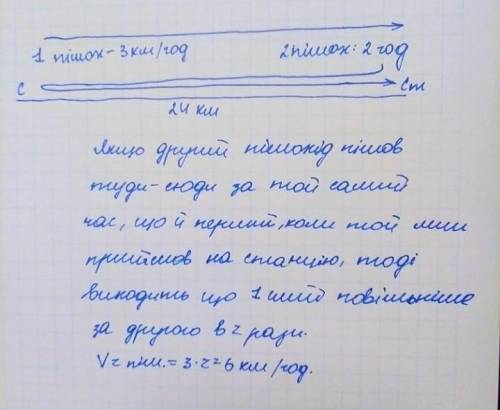 1 пішох - 3 км/год 2 пішох: 2 год
С Ст
24 км
Якщо другий пішохід пішов
туди-сюди за той самий
час, що й перший, коли той лиш
прийшов на станцію, тоді
виходить що 1 ший повільніше
за другого в 2 рази.
V2 піш. = 3·2=6 км/год.